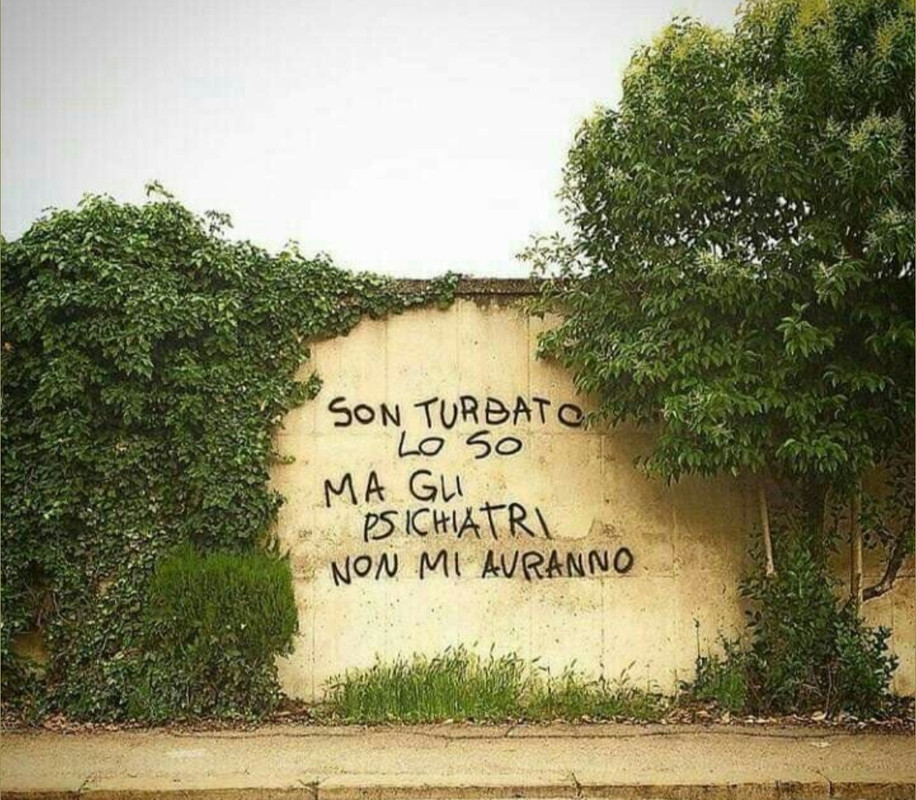 SON TURBATO
LO SO
MA GLI
PSICHIATRI
NON MI AVRANNO